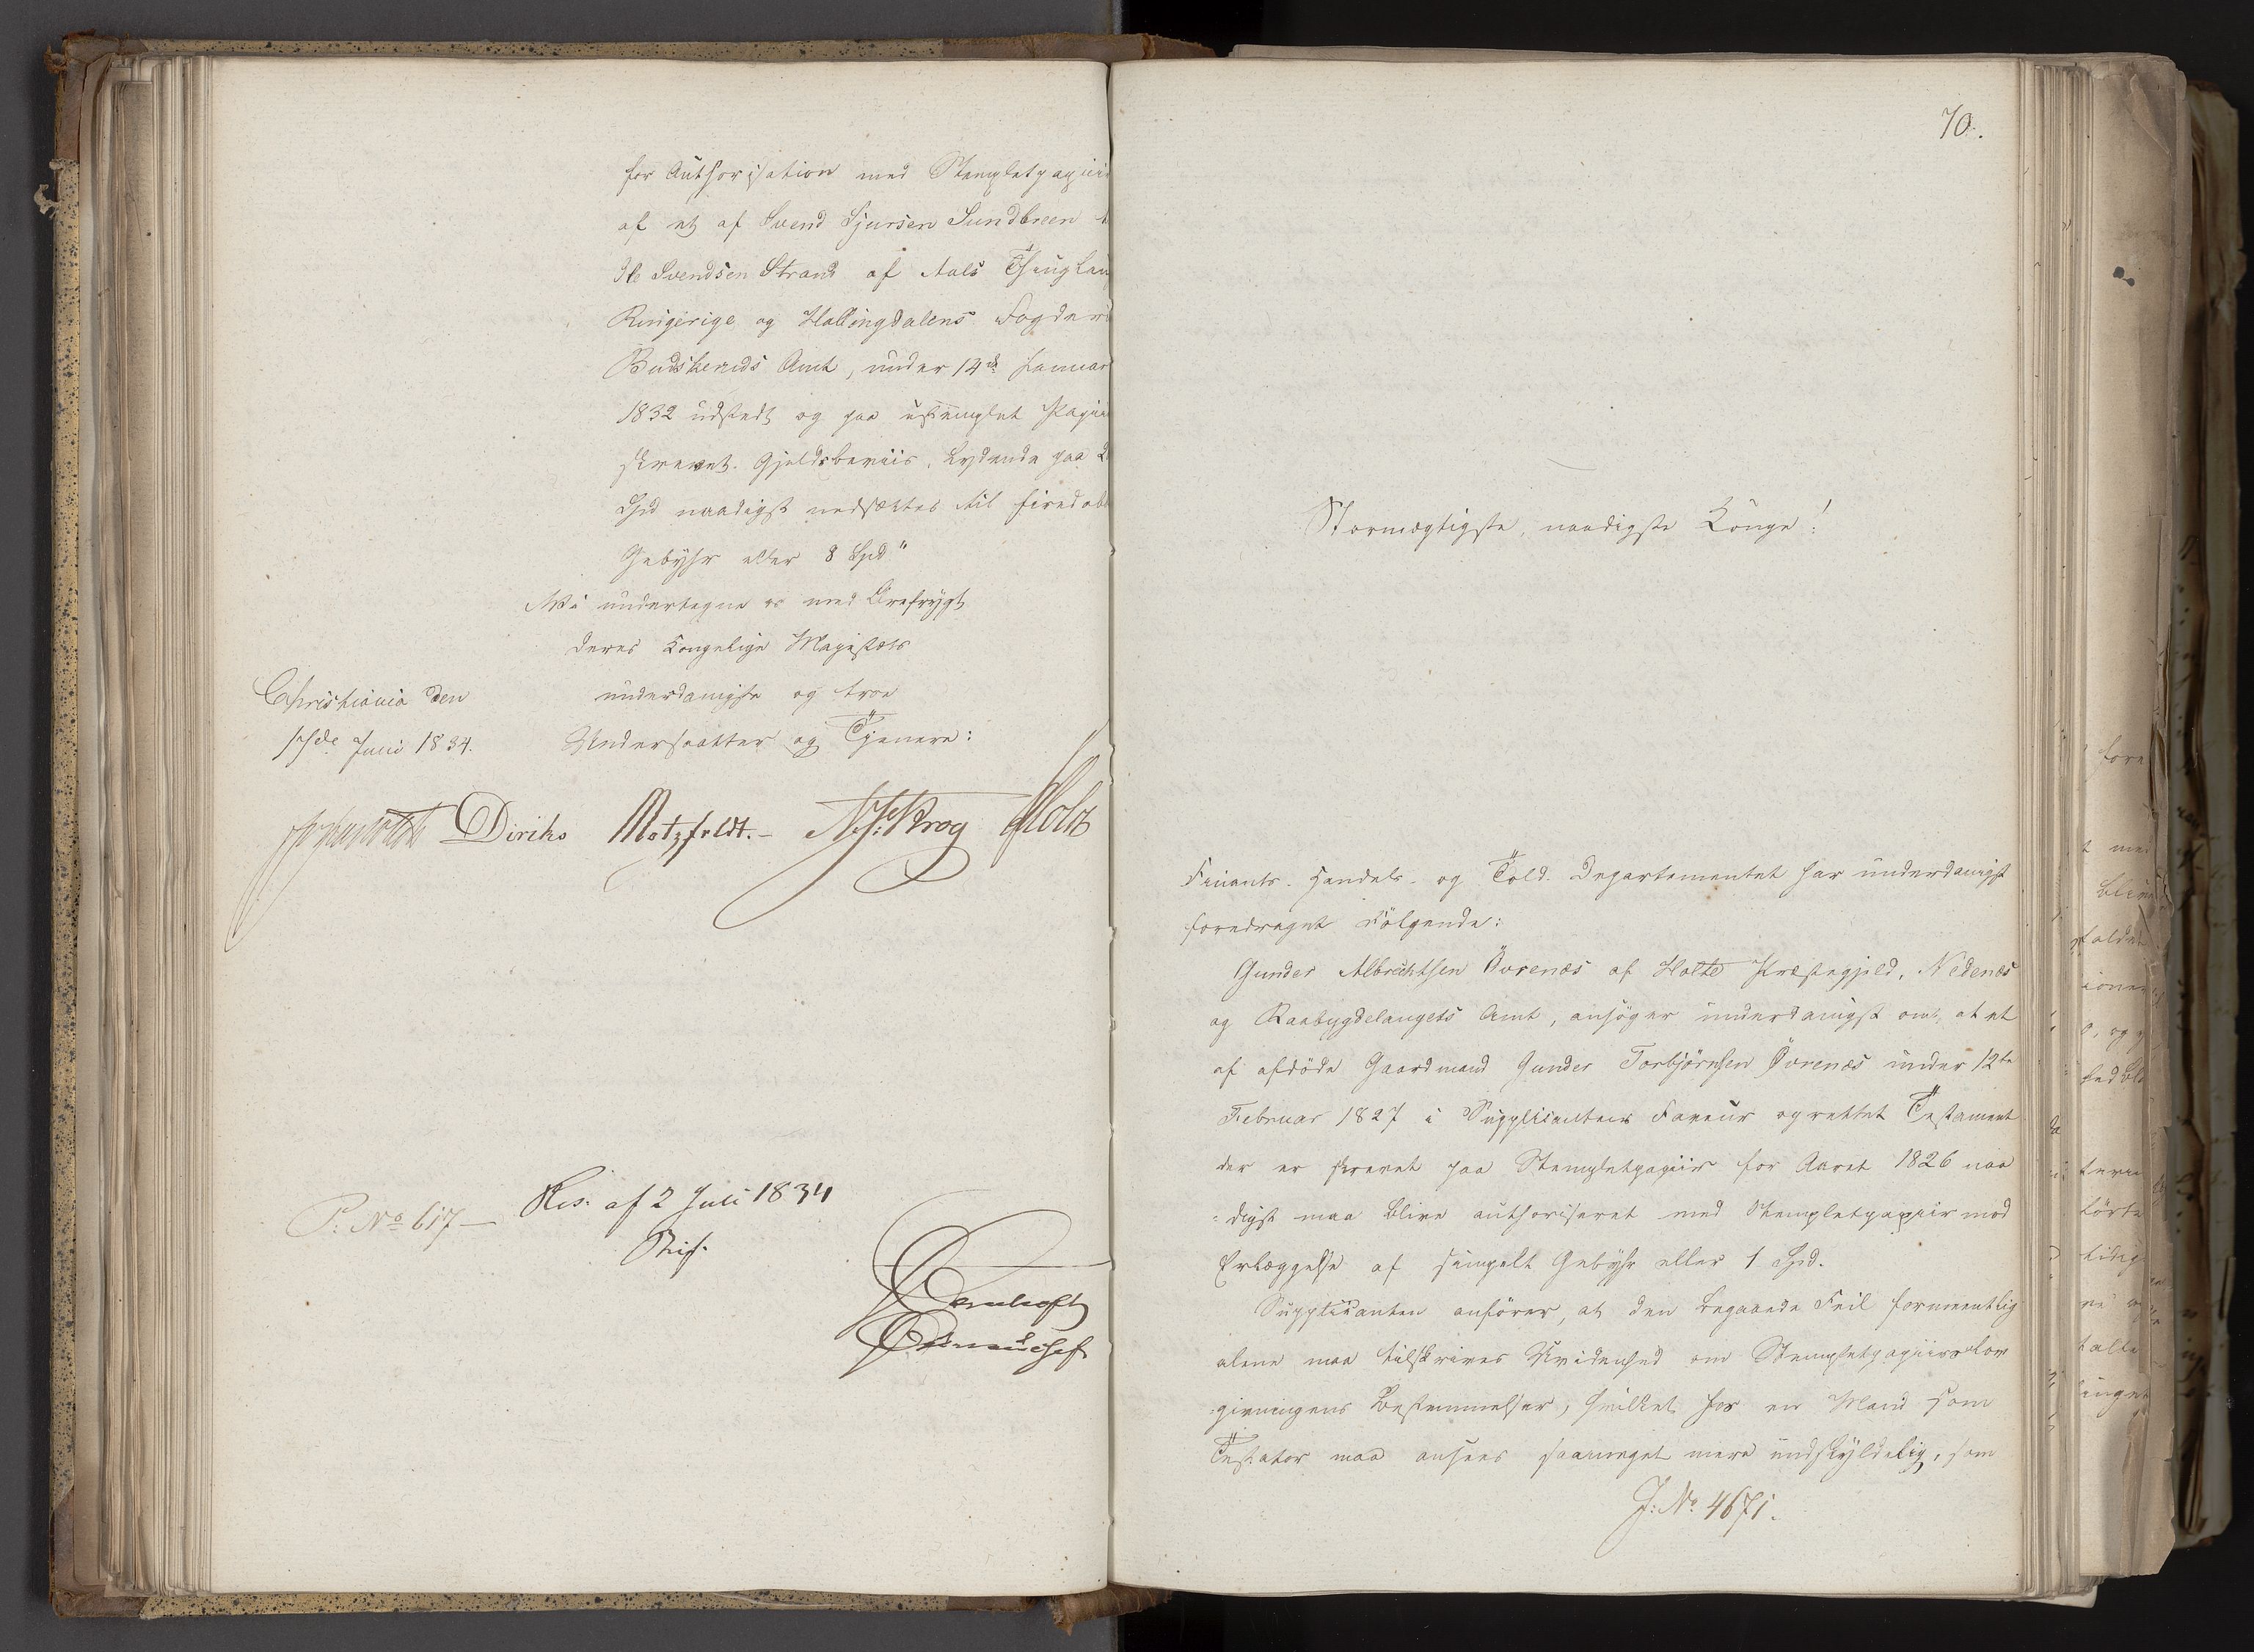 for Authorisation med Stempletpapiir
af et af Svend Sjursen Sundbreen
Ole Svendsen Strand af Aals Thinglau
Ringerige og Hallingdalens Fogderi
Budskeruds Amt, under 14de Januar
1832 udstedt og paa ustemplet Papiir
skrevet Gjeldsbeviis, lydende paa
Spd naadigst nedsættes til firedobb
Gebyhr eller 8 Spd"
Vi undertegne os med Ærefrygt
Deres Kongelige Majestæts
Christiania den
underdanigste og troe
17de Juni 1834.
Undersaatter og Tjenere:
Diriks Motzfeldt.- Krog Holst
P: No 617 —
Res. af 2 Juli 1834
70.
Stormægtigste, naadigste Konge!
Finants- Handels- og Told-Departementet har underdanigst
foredraget Følgende:
Gunder Albrechtsen Øvrenæs af Holte Præstegjeld, Nedenæs
og Raabygdelaugets Amt, ansøger underdanigst om, at et
af afdøde Gaardmand Gunder Torbjørnsen Øvrenæs under 12te
Februar 1827 i Supplicantens Faveur oprettet Testament
der er skrevet paa Stempletpapiir for Aaret 1826 naa
=digst maa blive authoriseret med Stempletpapiir mod
Erlæggelse af simpelt Gebyhr eller 1 Spd.
Supplicanten anfører, at den begaaede Feil formeentlig
alene maa tilskrives Uvidenhed om Stempletpapiirslov
=givningens Bestemmelser, hvilket hos en Mand som
Testator maa ansees saameget mere undskyldelig, som
J: No 4671.